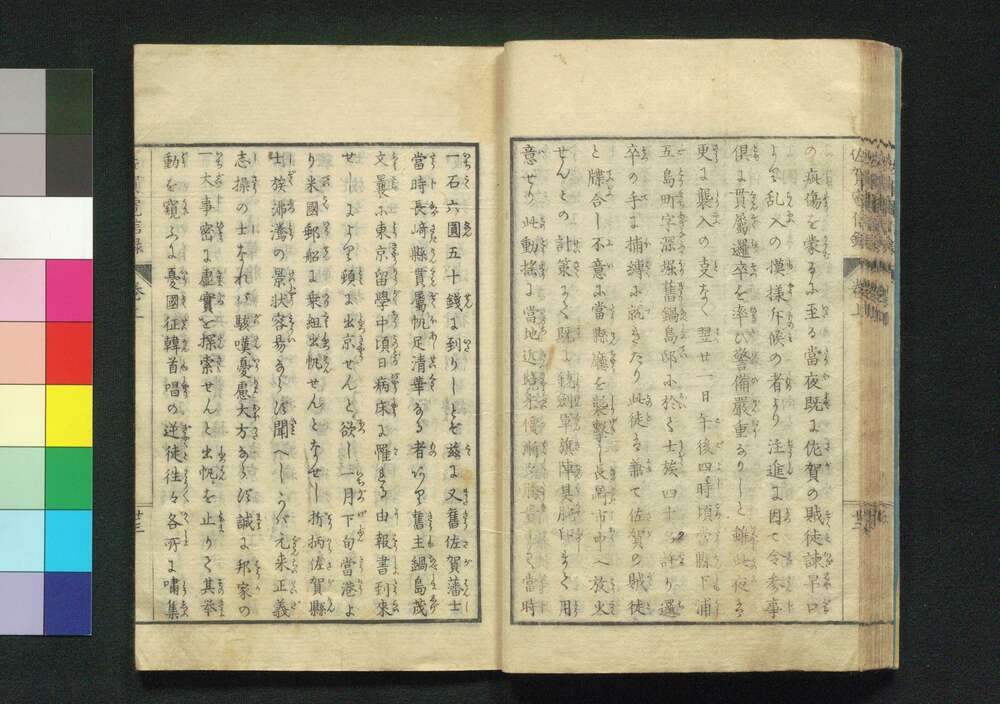 の疵傷を蒙るに至る當夜既に佐賀の賊徒諫早口
より乱入の摸様斥候の者より注進に因て令参事
倶に貫屬邏卒を率ひ警備嚴重なりしと雖此夜は
更に襲入の支なく翌廿一日午後四時頃當縣下浦
五島町字 舊鍋島邸に於て士族四十名許り邏
卒の手に捕縛に就きたり此徒は兼て佐賀の賊徒
と牒合し不意に當縣廳を襲撃し長嵜市中へ放火
せんとの計策にて既に銃劔軍旗陣具 まて用
意せり此動搖に當地近 當時
一石六圓五十錢に到りしとぞ茲に又舊佐賀藩士
當時長﨑縣貫屬帆足清華なる者あり舊主鍋島茂
文曩に東京留學中頃日病床に罹るる由報書到來
せしにより頓に出京せんと欲し一月下旬當港よ
り米國郵船に乗組出帆せんとなせし折柄佐賀縣
士族沸騰の景状容易ならず聞へしうへ元来正義
志操の士なれば駭嘆憂慮大方ならず誠に邦家の
一大事密に虚實を探索せんと出帆を止りて其擧
動を窺ふに憂國征韓首唱の逆徒徃々各所に嘯集